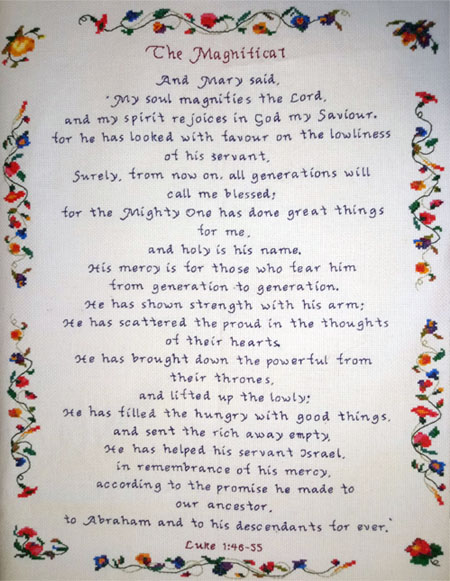 The Magnificat
And Mary said,
"My soul magnifies the Lord,
and my spirit rejoices in God my Saviour.
for he has looked with favour on the lowliness
of his servant,
Surely, from now on, all generations will
call me blessed;
for the Mighty One has done great things
for me,
and holy is his name.
His mercy is for those who fear him
from generation to generation.
He has shown strength with his arm;
He has scattered the proud in the thoughts
of their hearts.
He has brought down the powerful from
their thrones,
and lifted up the lowly;
He has filled the hungry with good things,
and sent the rich away empty,
He has helped his servant Israel,
in remembrance of his mercy,
according to the promise he made to
our ancestor,
to Abraham and to his descendants for ever."
Luke 1:46-55